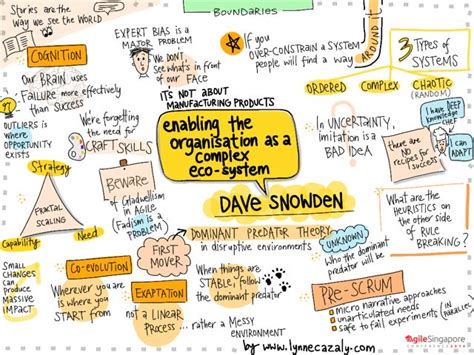 Stories are the
Way we see the WORLD
COGNITION
Our BRAIN uses
FAILURE more effectively
than SUCCESS
OUTLIERS is
where
OPPORTUNITY
EXISTS
We're forgetting
the need for
CRAFT SKILLS
EXPERT BIAS is a
MAJOR PROBLEM
We DON'T
See what's in
front of
our FACE
IT'S NOT ABOUT
MANUFACTURING PRODUCTS
BOUNDARIES
If you
OVER-CONSTRAIN A SYSTEM
PEOPLE will find a way
AROUND it
3 Types of
SYSTEMS
ORDERED
COMPLEX
CHAOTIC
(RANDOM)
enabling the
organisation as a
complex
eco-system
DAVE SNOWDEN
In UNCERTAINTY
imitation is a
BAD IDEA
I HAVE DEEP
knowledge
CHEF
THERE are
NO RECIPES for
SUCCESS
What are the
HEURISTICS on
the other side
of RULE
BREAKING?
Strategy
FRACTAL
SCALING
Capability
Need
BEWARE
of Gladwellism
in AGILE
(Fadism is a
PROBLEM)
FIRST
MOVER
DOMINANT PREDATOR THEORY
in disruptive environments
UNKNOWN
Who the dominant
predator will be
When things are
STABLE, follow
the dominant
predator
Small
changes can
produce
MASSIVE
IMPACT
CO-EVOLUTION
Wherever you are
is where you
START from
EXAPTATION
not a LINEAR
PROCESS...
rather a MESSY
ENVIRONMENT
PRE-SCRUM
micro narrative approaches
unarticulated needs
safe to fail experiments
(IN PARALLEL)
by www.lynnecazaly.com
AgileSingapore